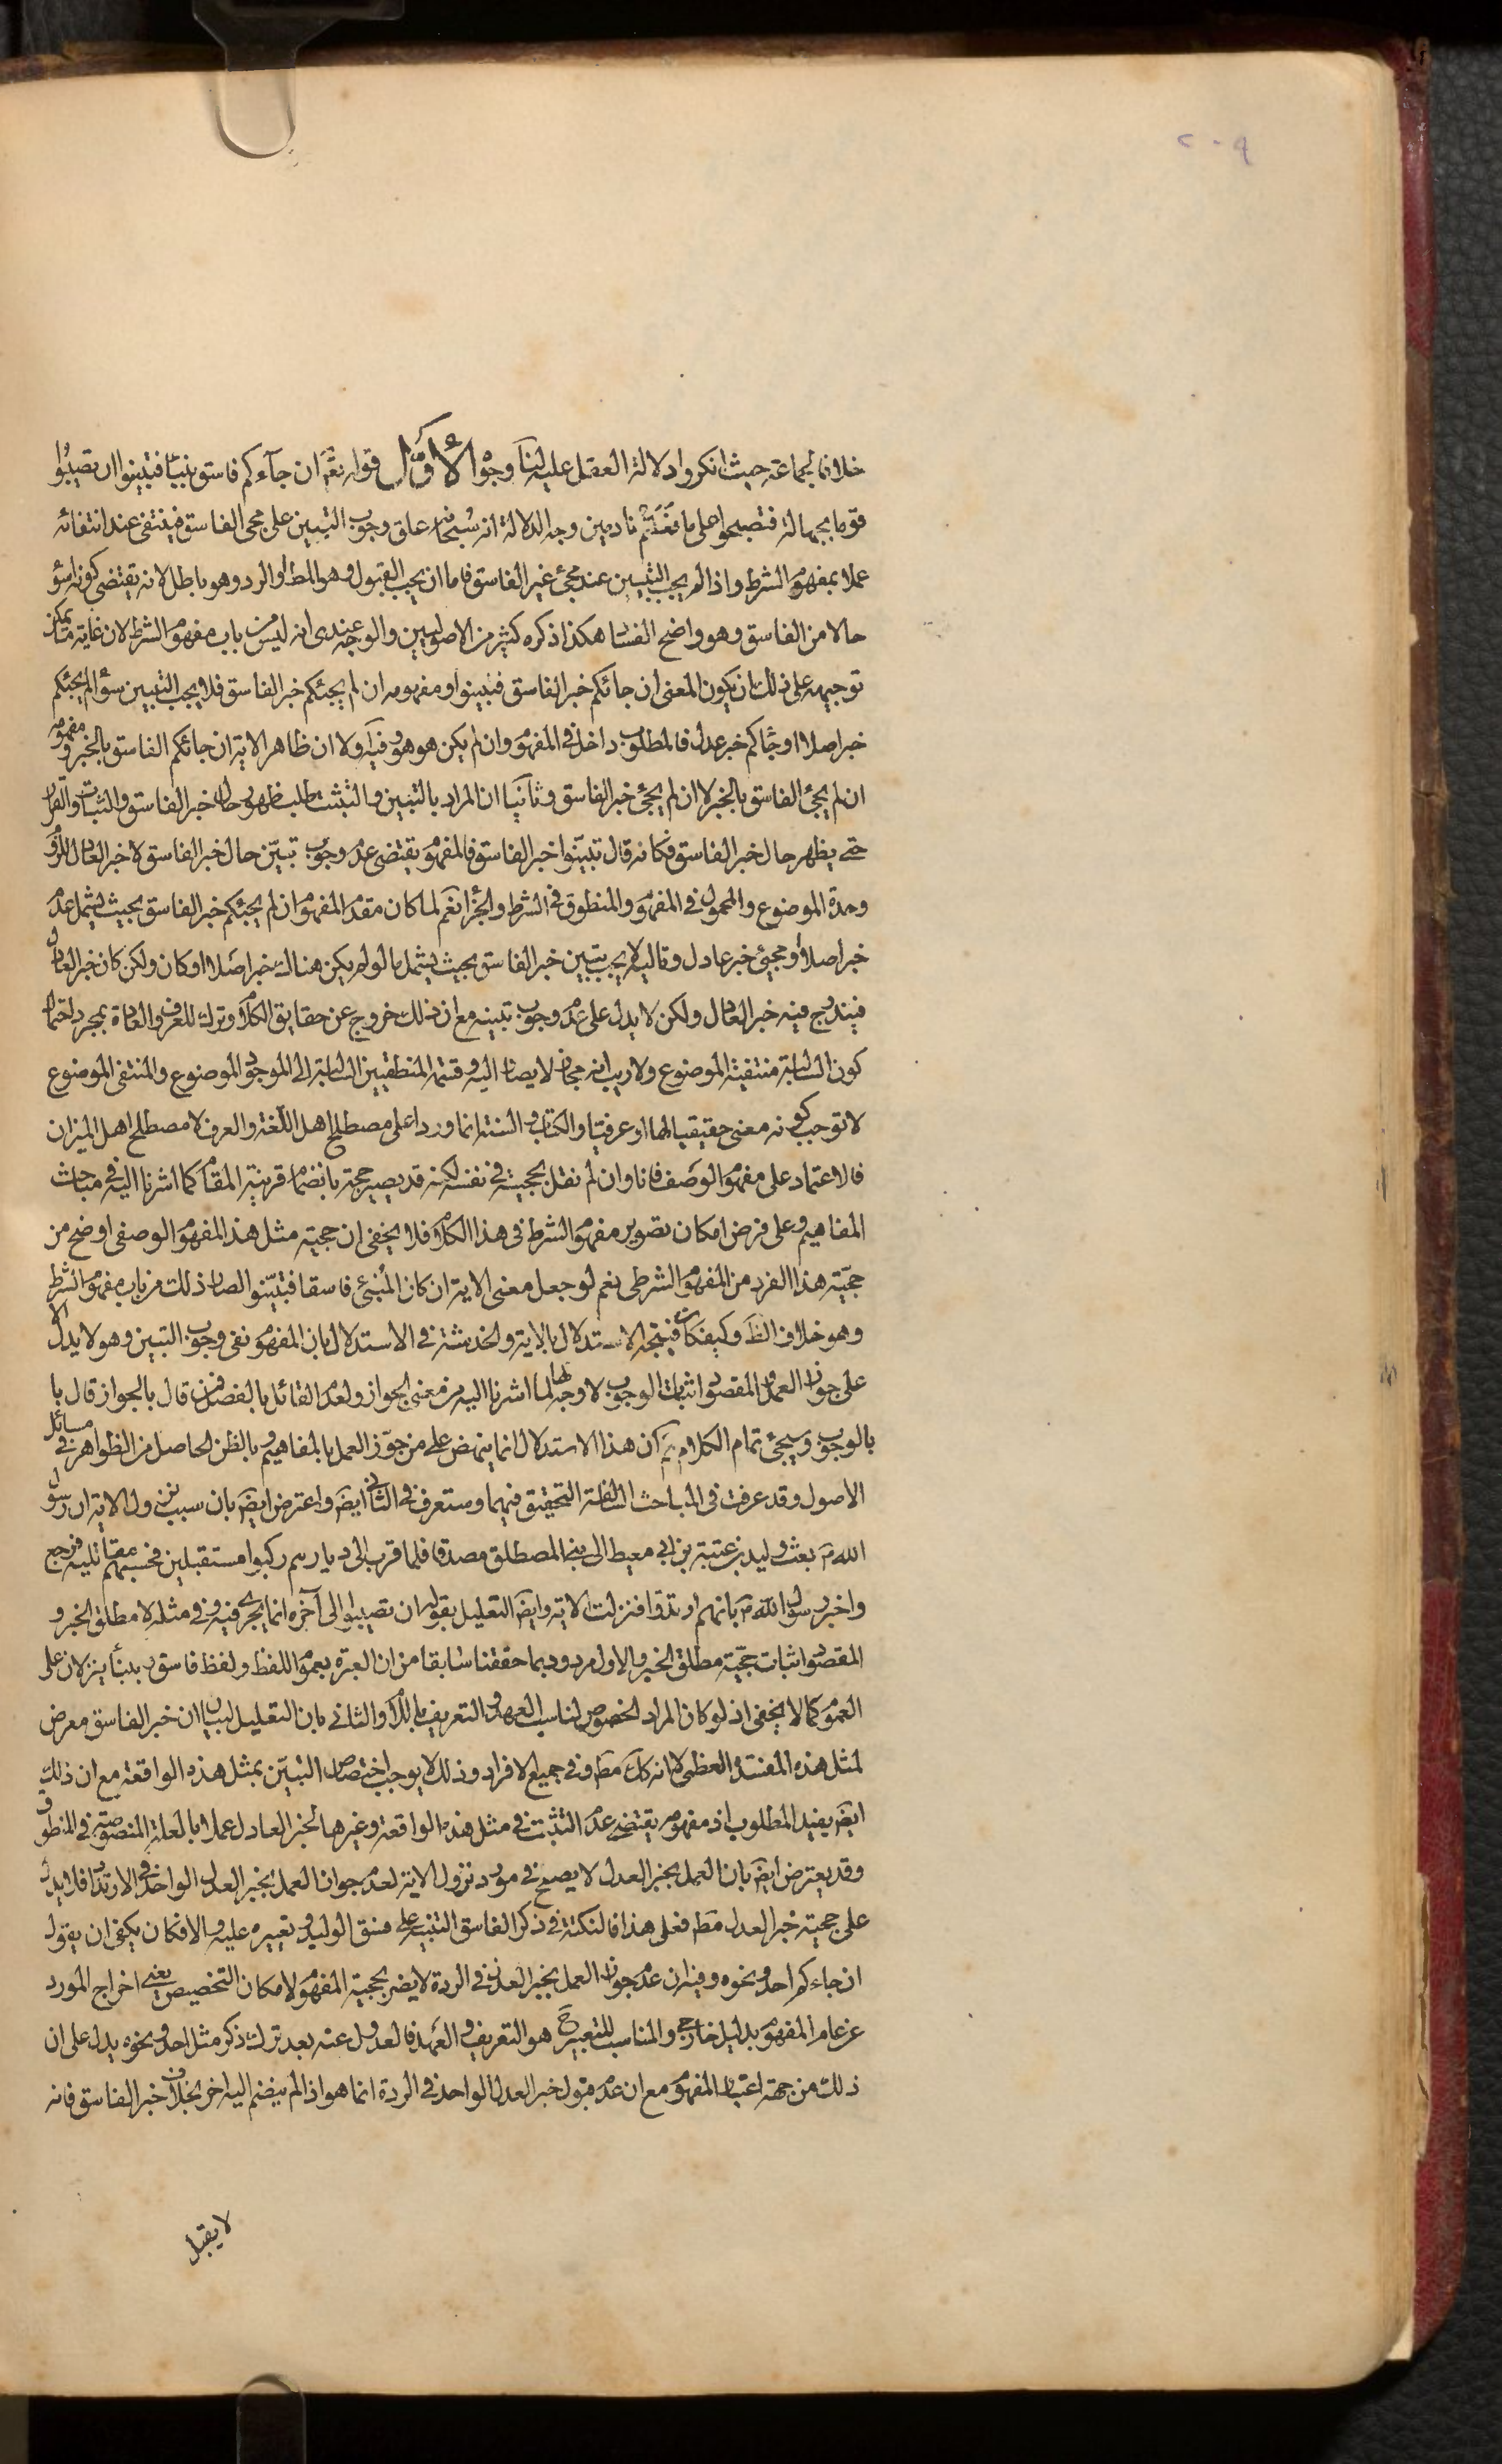 ٢٠٩
خلافا لجماعة حيث انكروا دلالة العقل عليه لنا وجوه الأوّل قوله تعّم ان جآءكم فاسق بنبئا فتبينوا ان تصيبُوا
قوما بجهالة فتصبحوا على ما فعَلتم نادمين وجه الدلالة انه سُبحانه علق وجوب التبين على مجى الفاسق فينتفى عند انتفائه
عملا بمفهوم الشرط واذا لم يجب التبين عند مجئ غير الفاسق فاما ان يجب القبول وهو المط او الرد وهو باطل لانه يقتضى كونه اسؤ
حالا من الفاسق وهو واضح الفسا هكذا ذكره كثير من الاصوليين والوجه عندى انه ليس من باب مفهوم الشرط لان غاية ما يمكن
توجيهه على ذلك ان يكون المعنى ان جائكم خبر الفاسق فتبينوا ومفهومه ان لم يجئكم خبر الفاسق فلا يجب التبيين سؤا لم يجئكم
خبر اصلا او جاكم خبر عدل فالمطلوب داخل فى المفهوم وان لم يكن هو هو وفيه اولا ان ظاهر الاية ان جائكم الفاسق بالخبر ومفهومه
ان لم يجئ الفاسق بالخبر لا ان لم يجئ خبر الفاسق وثانيا ان المراد بالتبيين والتثبت طلب ظهور حال خبر الفاسق والثبات والقرار
حتى يظهر حال خبر الفاسق فكانه قال تبيّنوا خبر الفاسق فالمفهوم يقتضى عدم وجوب تبيّن حال خبر الفاسق لا خبر العادل للزوم
وحدة الموضوع والمحمول فى المفهوم والمنطوق فى الشرط والجزا نعم لما كان مقدم المفهوم ان لم يجئكم خبر الفاسق بحيث يشمل عدم
خبر اصلا او مجيئ خبر عادل وتاليه لا يجب تبيين خبر الفاسق بحيث يشمل ما لو لم يكن هناك خبر اصلا او كان ولكن كان خبر العادل
فيندرج فيه خبر العادل ولكن لا يدل على عدم وجوب تبينه مع ان ذلك خروج عن حقايق الكلام وترك للعرف والعادة بمجرد احتمال
كون السالبة منتفية الموضوع ولا ريب انه مجاز لا يصار اليه وقسمة المنطقيين السالبة الى الموجود الموضوع والمنتفى الموضوع
لا توجب كونه معنى حقيقيا لها او عرفيا والكتاب والسنة انما وردا على مصطلح اهل اللّغة والعرف لا مصطلح اهل الميزان
فالاعتماد على مفهوم الوصف فانا وان لم نقل بحجيته فى نفسه لكنه قد يصير حجة بانضمام قرينة المقام كما اشرنا اليه فى مباحث
المفاهيم وعلى فرض امكان تصوير مفهوم الشرط فى هذا الكلام فلا يخفى ان حجية مثل هذا المفهوم الوصفى اوضح من
حجّية هذا الفرد من المفهوم الشرطى نعم لو جعل معنى الاية ان كان المُنبئ فاسقا فتبيّنوا لصار ذلك من باب مفهوم الشرط
وهو خلاف الظ وكيف كان فيتجه الاستدلال بالاية والخدشة فى الاستدلال بان المفهوم نفى وجوب التبين وهو لا يدل الا
على جواز العمل والمقصود اثبات الوجوب لا وجه لها لما اشرنا اليه من معنى الجواز ولعدم القائل بالفصل فمن قال بالجواز قال با
بالوجوب وسيجئ تمام الكلام ثم ان هذا الاستدلال انما ينهض على من جوّز العمل بالمفاهيم و بالظن الحاصل من الظواهر فى مسائل
الاصول وقد عرفت فى المباحث السالفة التحقيق فيهما وستعرف فى الثانى ايضَ واعترض ايضَ بان سبب نزول الاية ان رسول
الله ص بعث وليد بن عتبة بن ابى معيط الى بنى المصطلق مصدقا فلما قرب الى ديارهم ركبوا مستقبلين فحسبهم مقاتليه فرجع
واخبر رسول الله ص بانهم ارتدوا فنزلت الاية وايضَ التعليل بقوله ان تصيبوا الى آخره انما يجرى فيه وفى مثله لا مطلق الخبر و
المقصود اثبات حجّية مطلق الخبر والاول مردود بما حققنا سٰابقا من ان العبرة بعموم اللفظ ولفظ فاسق وبنبأ ينزلان على
العموم كما لا يخفى اذ لو كان المراد الخصوص لناسب العهد والتعريف باللام والثانى بان التعليل لبيان ان خبر الفاسق معرض
لمثل هذه المفسدة العظمى لا انه كك مط وفى جميع الافراد وذلك لا يوجب اختصاص التبيّن بمثل هذه الواقعة مع ان ذلك
ايضَ يفيد المطلوب اذ مفهومه يقتضى عدم التثبت فى مثل هذه الواقعة وغيرها لخبر العادل عملا بالعلة المنصوصة فى المنطوق
وقد يعترض ايضَ بان العمل بخبر العدل لا يصح فى مورد نزول الاية لعدم جواز العمل بخبر العدل الواحد فى الارتداد فلا يدل
على حجية خبر العدل مط فعلى هذا فالنكتة فى ذكر الفاسق التنبيه على فسق الوليد وتعييره عليه والا فكان يكفى ان يقول
ان جاءكم احد ونحوه وفيه ان عدم جواز العمل بخبر العدل فى الردة لا يضر بحجية المفهوم لامكان التخصيص يعنى اخراج المورد
عن عام المفهوم بدليل خارجى والمناسب للتعيير ح هو التعريف والعهد فالعدول عنه بعد ترك ذكر مثل احد ونحوه يدل على ان
ذلك من جهة اعتبار المفهوم مع ان عدم قبول خبر العدل الواحد فى الردة انما هو اذا لم ينضم اليه اخر بخلاف خبر الفاسق فانه
لا يقبل